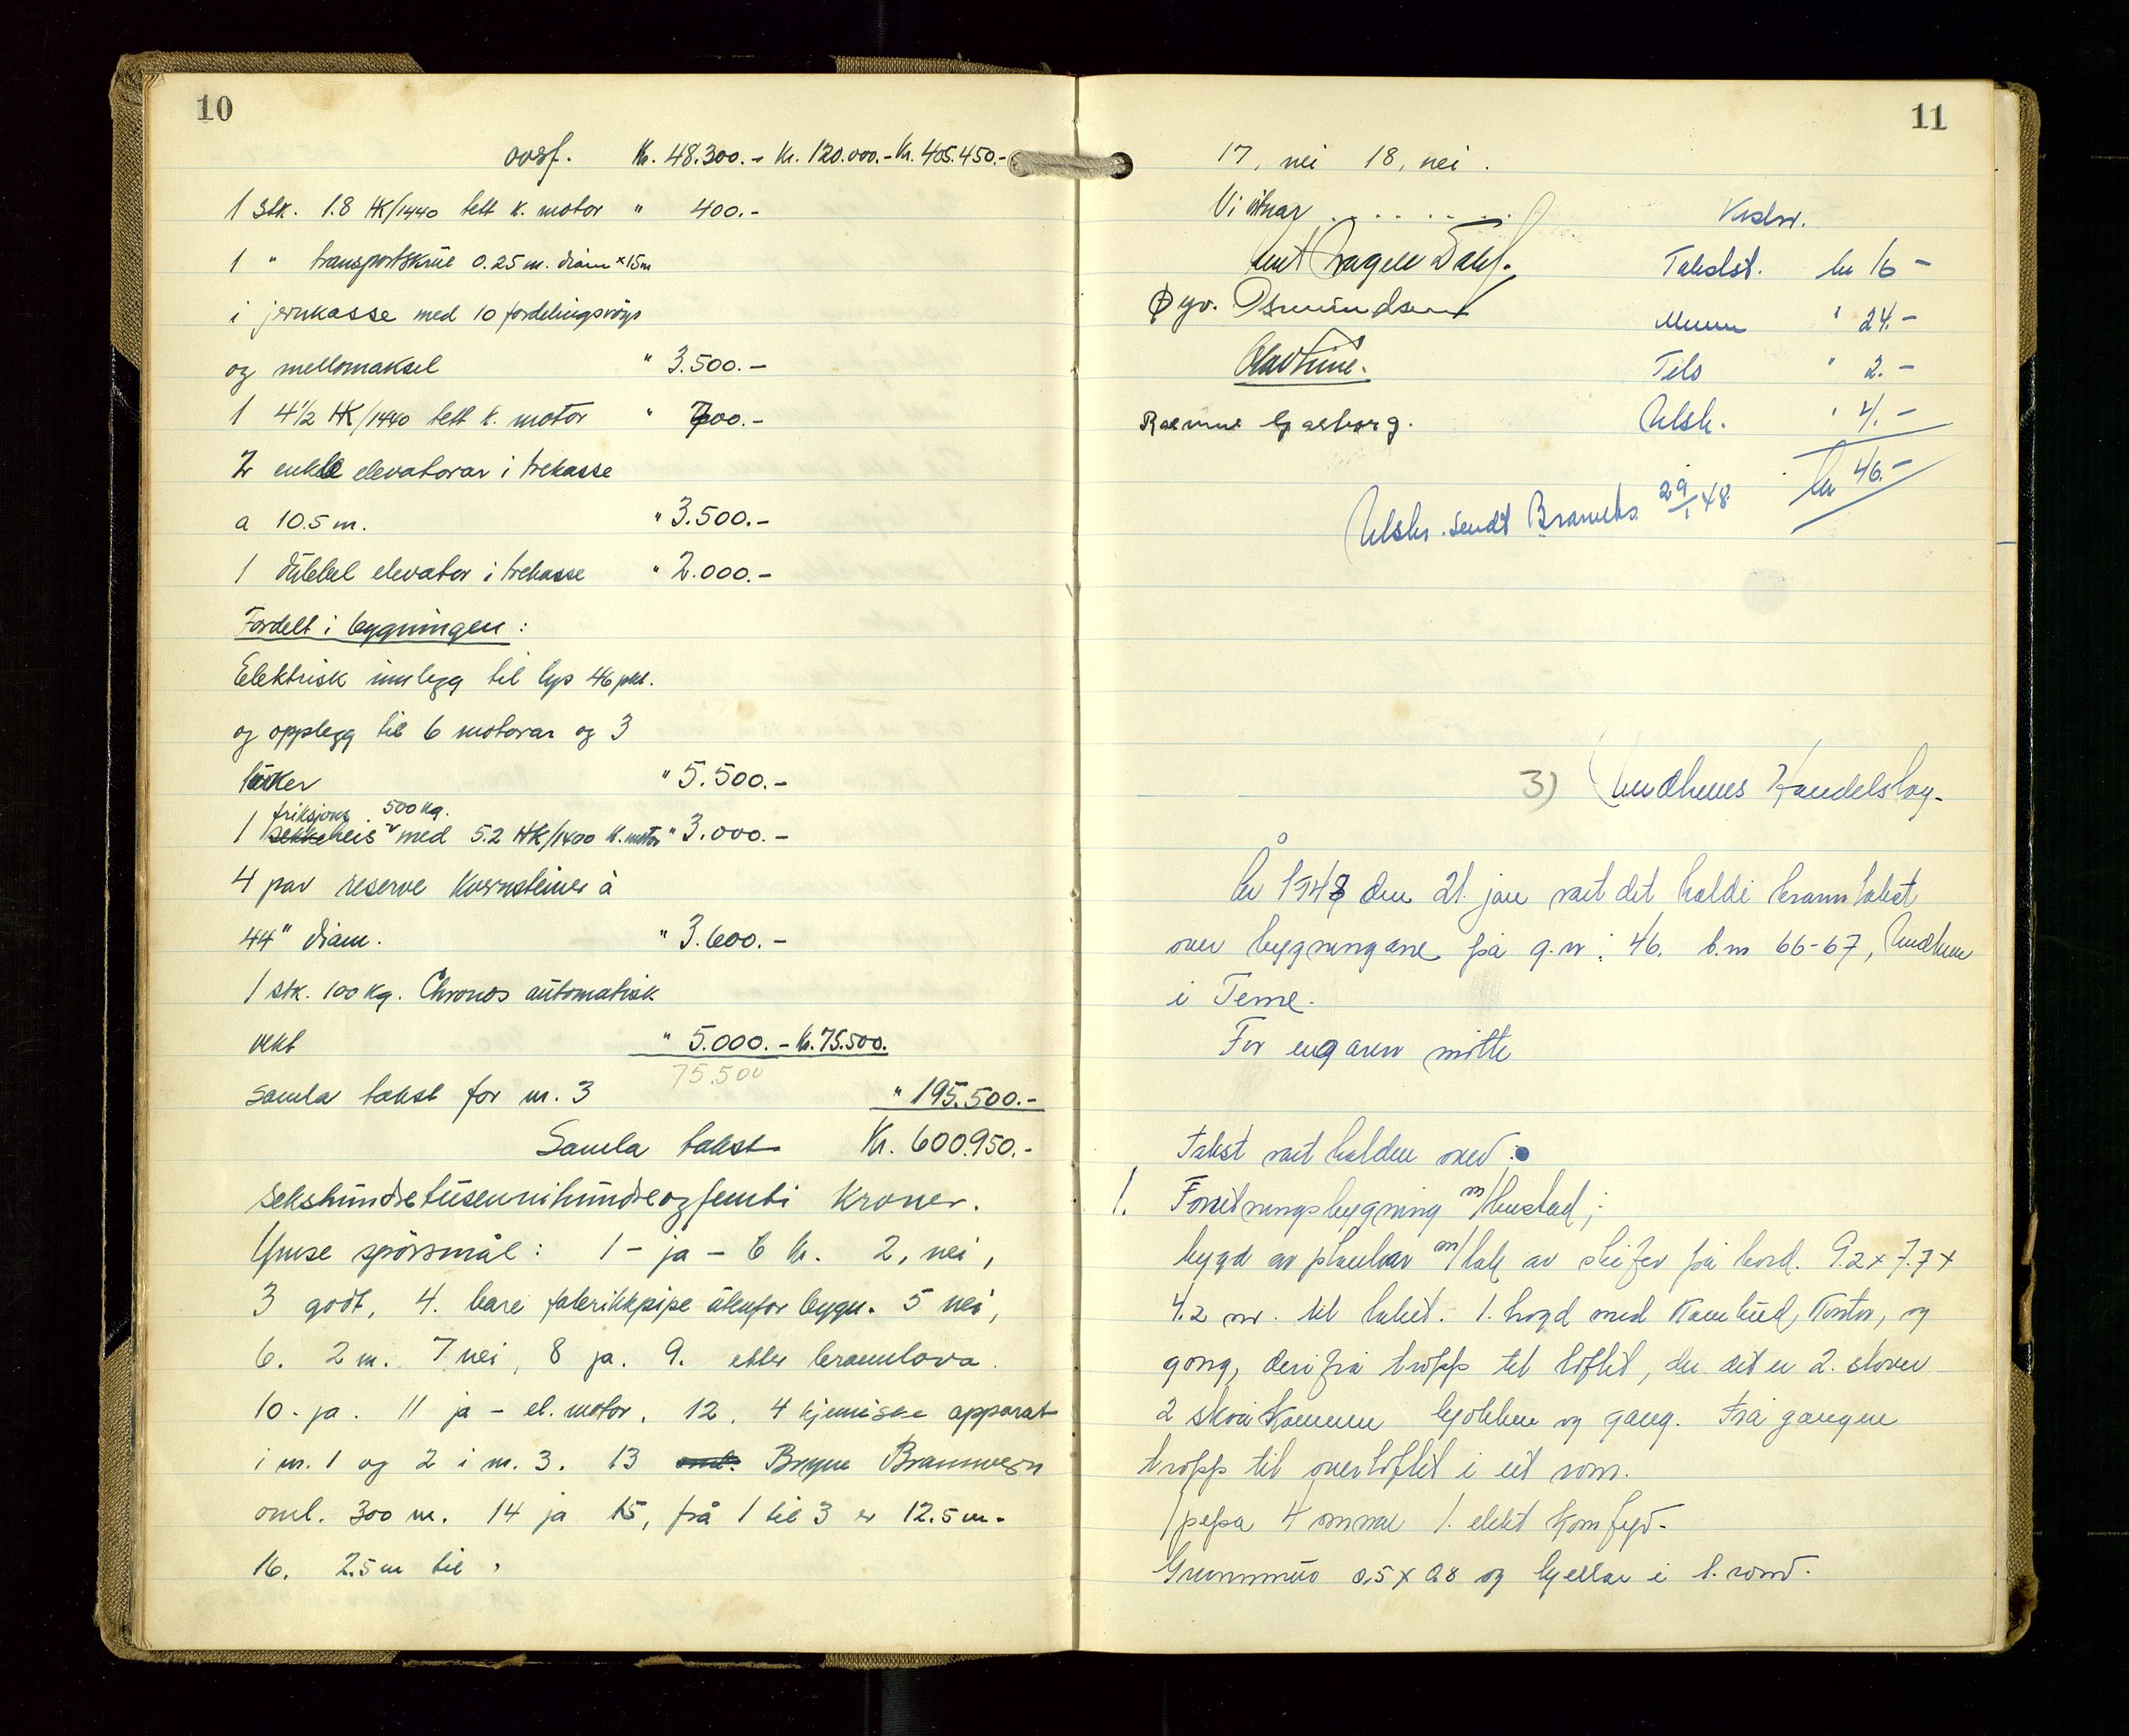 10
ovsf. Kr. 48.300.- Kr. 120.000.- Kr. 405.450.-
1 stk. 1.8 HK/1440 tett k. motor " 400.-
1 " transportskrue 0.25 m. diam × 15 m
i jernkasse med 10 fordelingsrøyr
og mellomaksel " 3.500.-
1 4½ HK/1440 tett k. motor " 700.-
2 enkle elevatorar i trekasse
a 10.5 m. " 3.500.-
1 dubbel elevator i trekasse " 2.000.-
Fordelt i bygningen:
Elektrisk innlegg til lys 46 pkt.
og opplegg til 6 motorar og 3
" 5.500.-
friksjons 500 kg.
1 sekkeheis med 5.2 HK/1400 k. motor " 3.000.-
4 par reserve kvernsteiner à
44" diam. " 3.600.-
1 stk. 100 kg. Chronos automatisk
vekt " 5.000.- Kr. 75.500.
75.500
Samla takst for nr. 3 " 195.500.-
Samla takst Kr. 600.950.-
sekshundretusennihundreogfemti kroner.
Ymse spörsmål: 1 - ja - 6 kr. 2, nei,
3 godt, 4. bare fabrikkpipe utenfor bygn. 5 nei,
6. 2 m. 7 nei, 8 ja. 9. etter brannlova.
10 - ja. 11 ja - el. motor, 12, 4 kjemiske apparat
i nr. 1 og 2 i nr. 3. 13 Bryne Brannvern
oml. 300 m. 14 ja 15, frå 1 til 3 er 12.5 m.
16. 2.5 m til
11
17, nei 18, nei.
Vitnar . . . . . . .
Takst. kr 16 -
" 24.-
Osmundsen
Tels " 2.-
Utsk. " 4.-
Rasmus Garborg.
kr 46.-
Utskr. sendt Brannks. 29/1 48
3) Undheims Handelslag.
År 1948 den 21. jan vart det haldi branntakst
over bygningane på g.nr: 46. b.nr 66-67, Undheim
i Time.
For eigaren møtte
Takst vart halden over:
1. Forretningsbygning m/bustad;
bygd av plankar m/tak av skifer på bord. 9.2 x 7.7 x
4.2 m. til taket. 1. høgd med krambud, kontor, og
gong, derifrå tropp til loftet, der det er 2. stover
2 skråkammer kjøkken og gang. Frå gangen
tropp til overloftet i eit rom.
1 pipa 4 omnar 1. elekt komfyr.
Grunnmur 0,5 x 0.8 og kjellar i 1. rom.